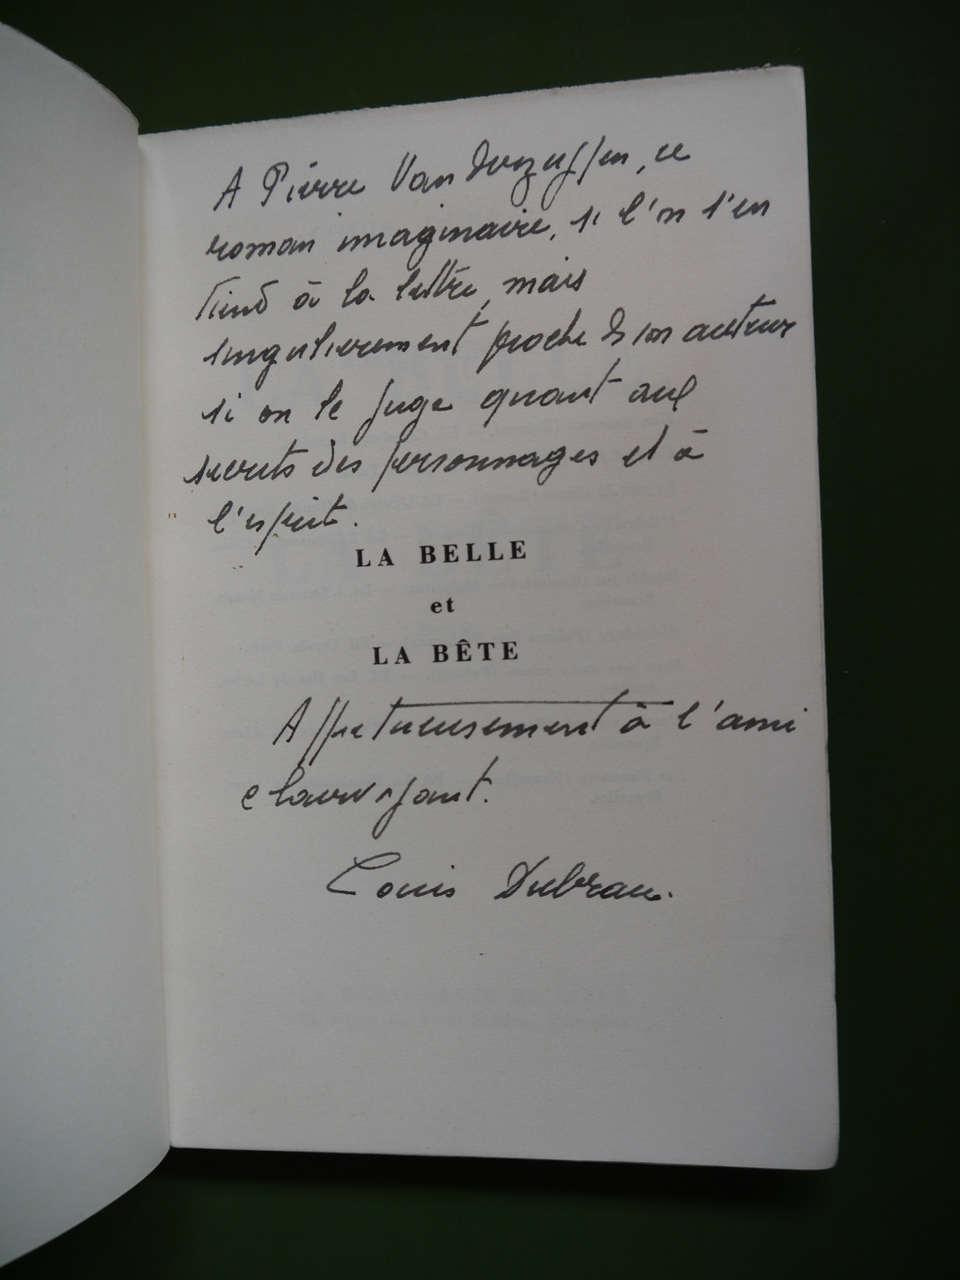 A Pierre Van
roman imaginaire, si l'on s'en
tient à la lettre, mais
singulièrement proche de son auteur
si on le juge quant aux
secrets des personnages et à
l'esprit.
LA BELLE
et
LA BÊTE
Affectueusement à l'ami
clairvoyant.
Louis Dubrau.